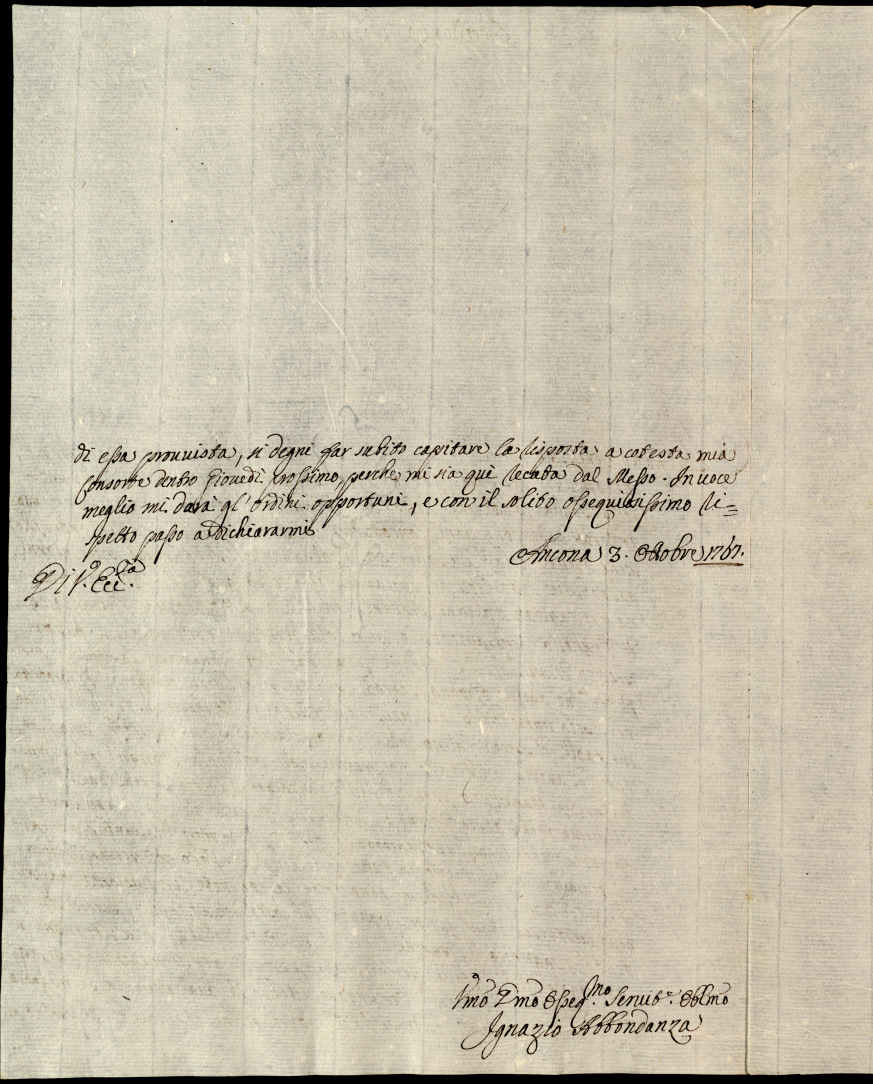 di essa provvista, si degni far subito capitare la risposta a cotesta mia
Consorte dentro Giovedì prossimo, perche mi sia quì recata dal Messo. In voce
meglio mi darà gl'ordini opportuni, e con il solito ossequiosissimo ri=
spetto passo a dichiararmi
Ancona 3. Ottobre 1767.
Di V. Ecc.za
Vmo Dmo Osseq.mo Servit.e Obblmo
Ignazio Abbondanza